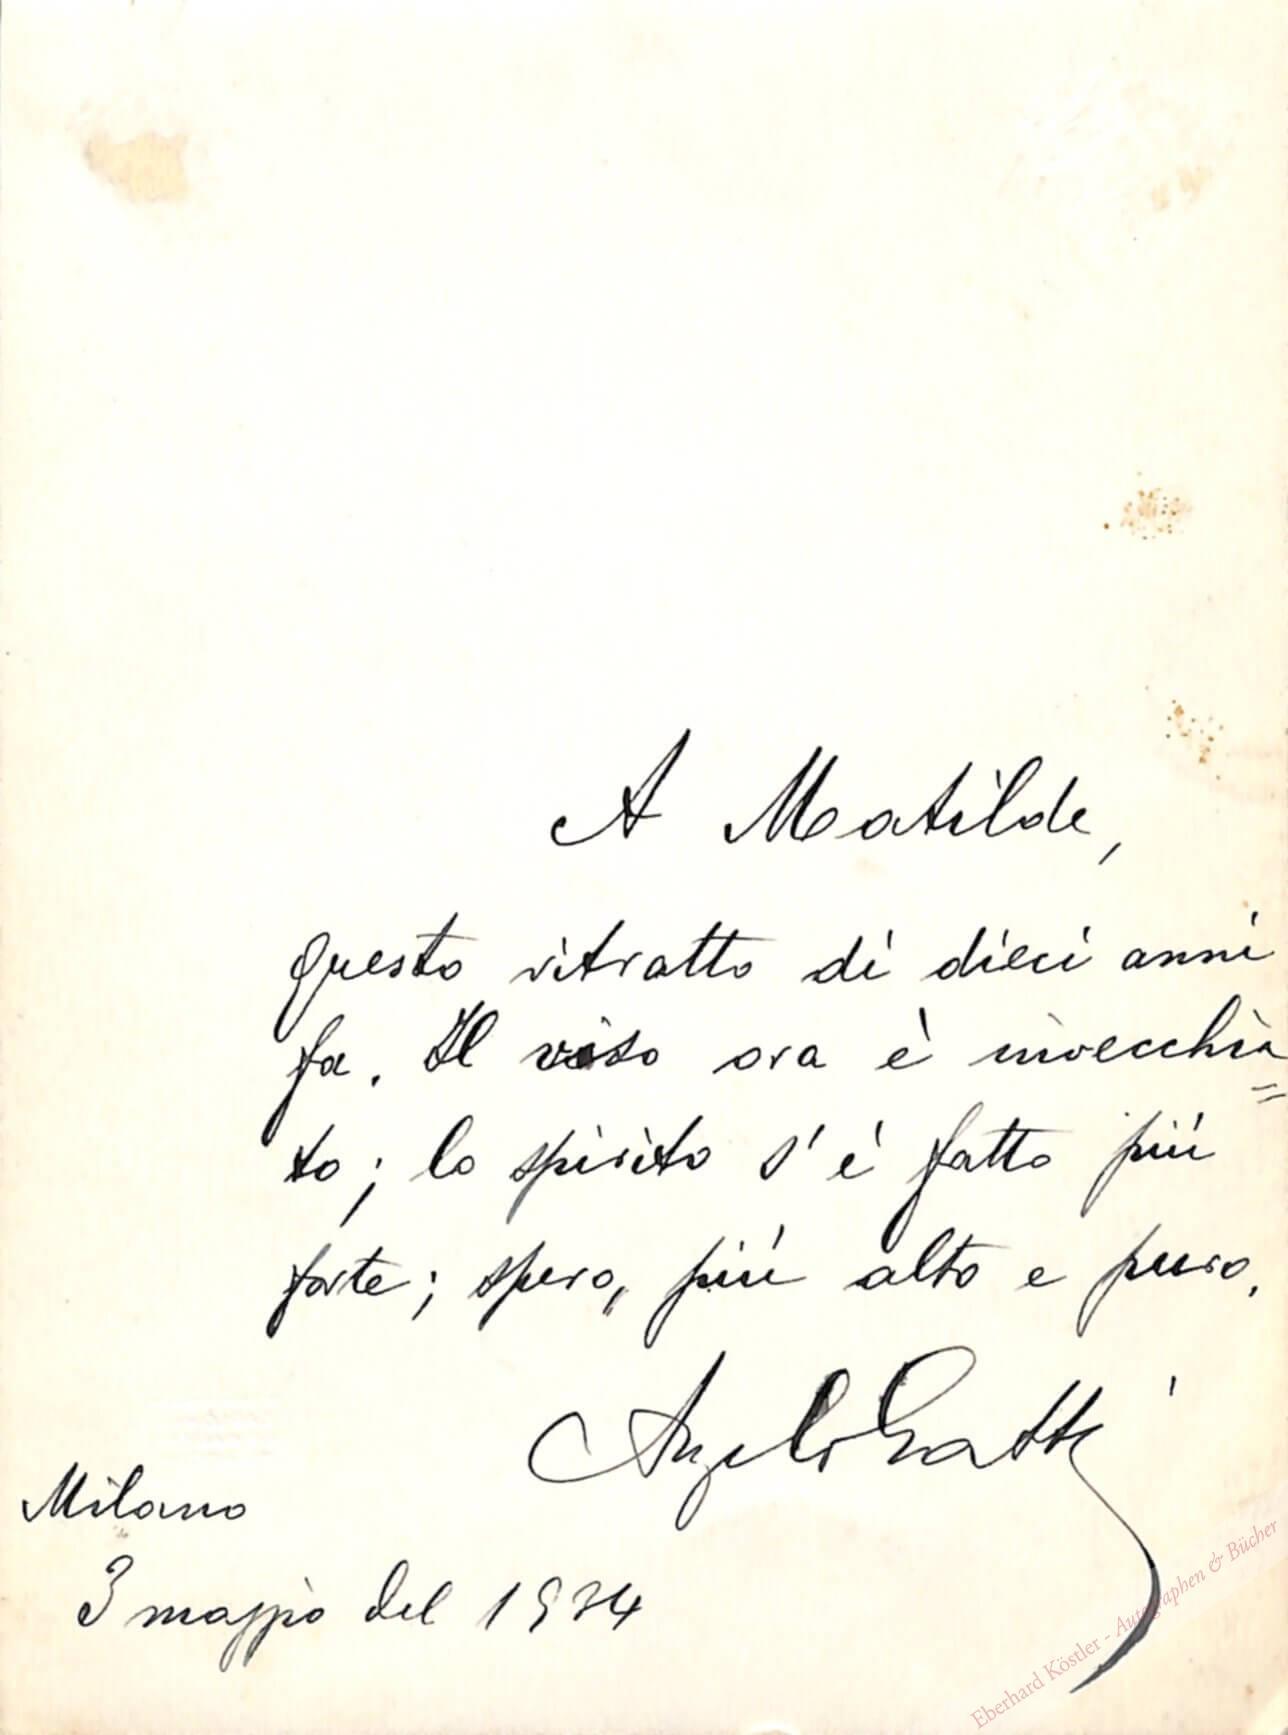 A Matilde,
questo ritratto di dieci anni
fa. Il viso ora è invecchia=
to; lo spirito s'è fatto più
forte; spero, più alto e puro.
Angelo Gatti
Milano
3 maggio del 1934
Eberhard Köstler - Autographen & Bücher